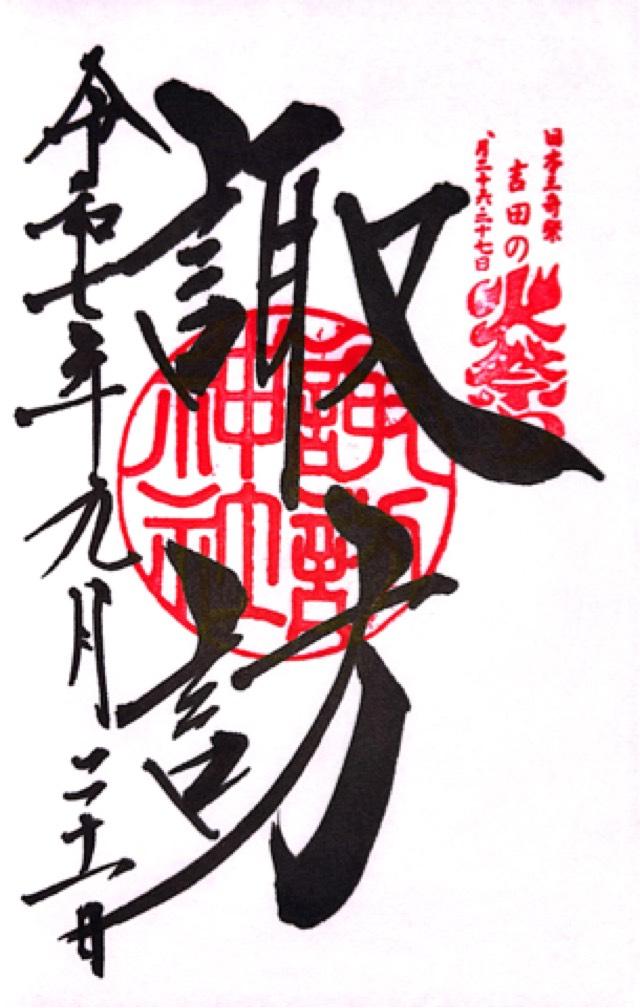 日本三奇祭
吉田の
火祭り
八月二十六・二十七日
諏訪
諏訪
神社
令和七年九月二十一日